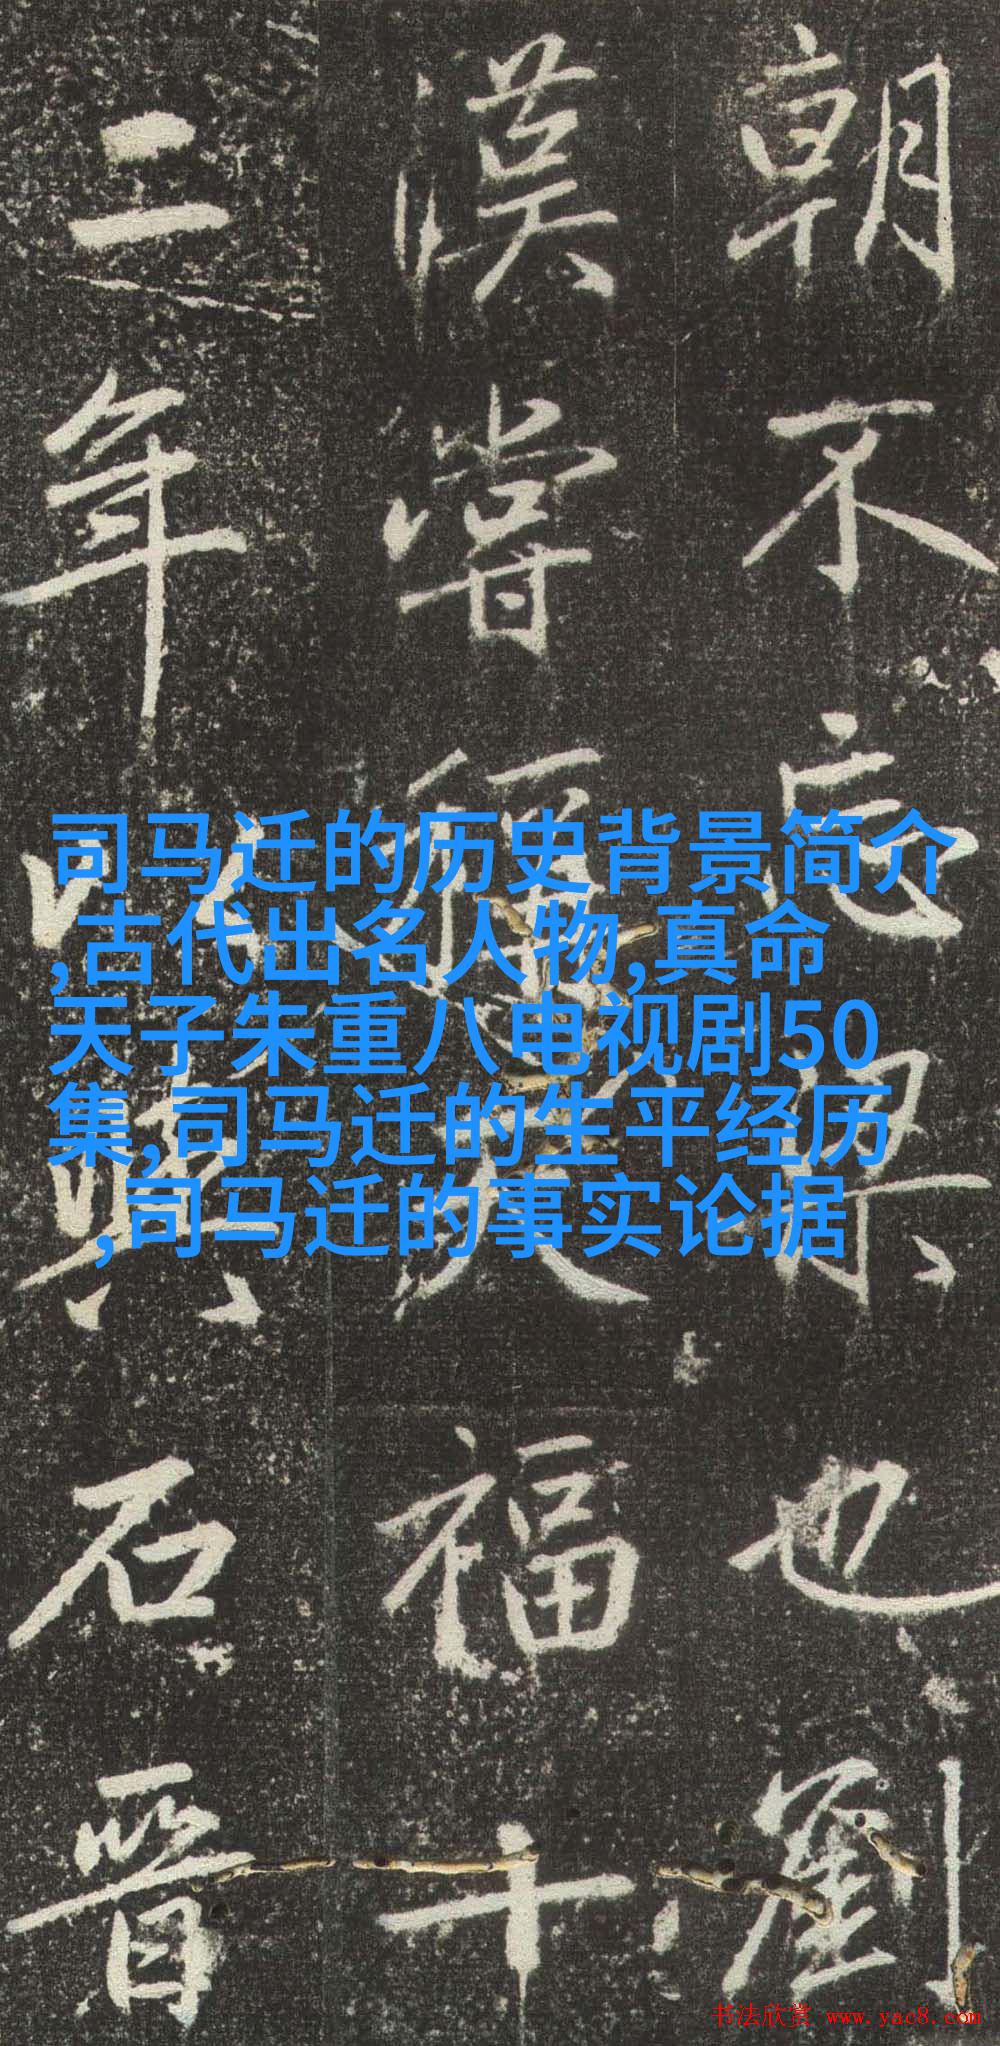 朝不忘梁也劉
漢嘗稱天福十
二年以石晉
司马迁的历史背景简介
,古代出名人物,真命
天子朱重八电视剧50
集,司马迁的生平经历
,司马迁的事实论据
书法欣赏 www.yac8.com